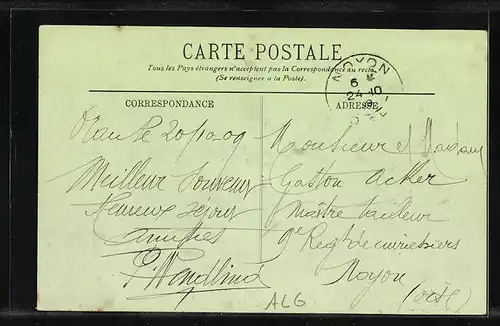 CARTE POSTALE
Tous les Pays étrangers n'acceptent pas la Correspondance au recto
(Se renseigner à la Poste).
NOYON
6 *
24-10
CORRESPONDANCE
ADRESSE
20/10-09
Meilleur Souvenir
séjour
amitiés
Monsieur et Madame
Gaston Acker
Maître tailleur
9e Regt de cuirassiers
Noyon
(Oise)
ALG